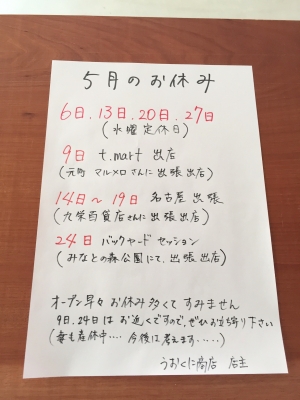 5月のお休み
6日.13日.20日.27日
(水曜定休日)
9日 t.mart 出店
(元町 マルメロさんに出張出店)
14日〜19日 名古屋出張
(丸栄百貨店さんに出張出店)
24日 バックヤードセッション
(みなとの森公園にて、出張出店)
オープン早々お休み多くてすみません
9日、24日はお近くですので、ぜひお立寄り下さい
(妻も産休中‥‥今後は考えます‥‥‥)
うおくに商店 店主